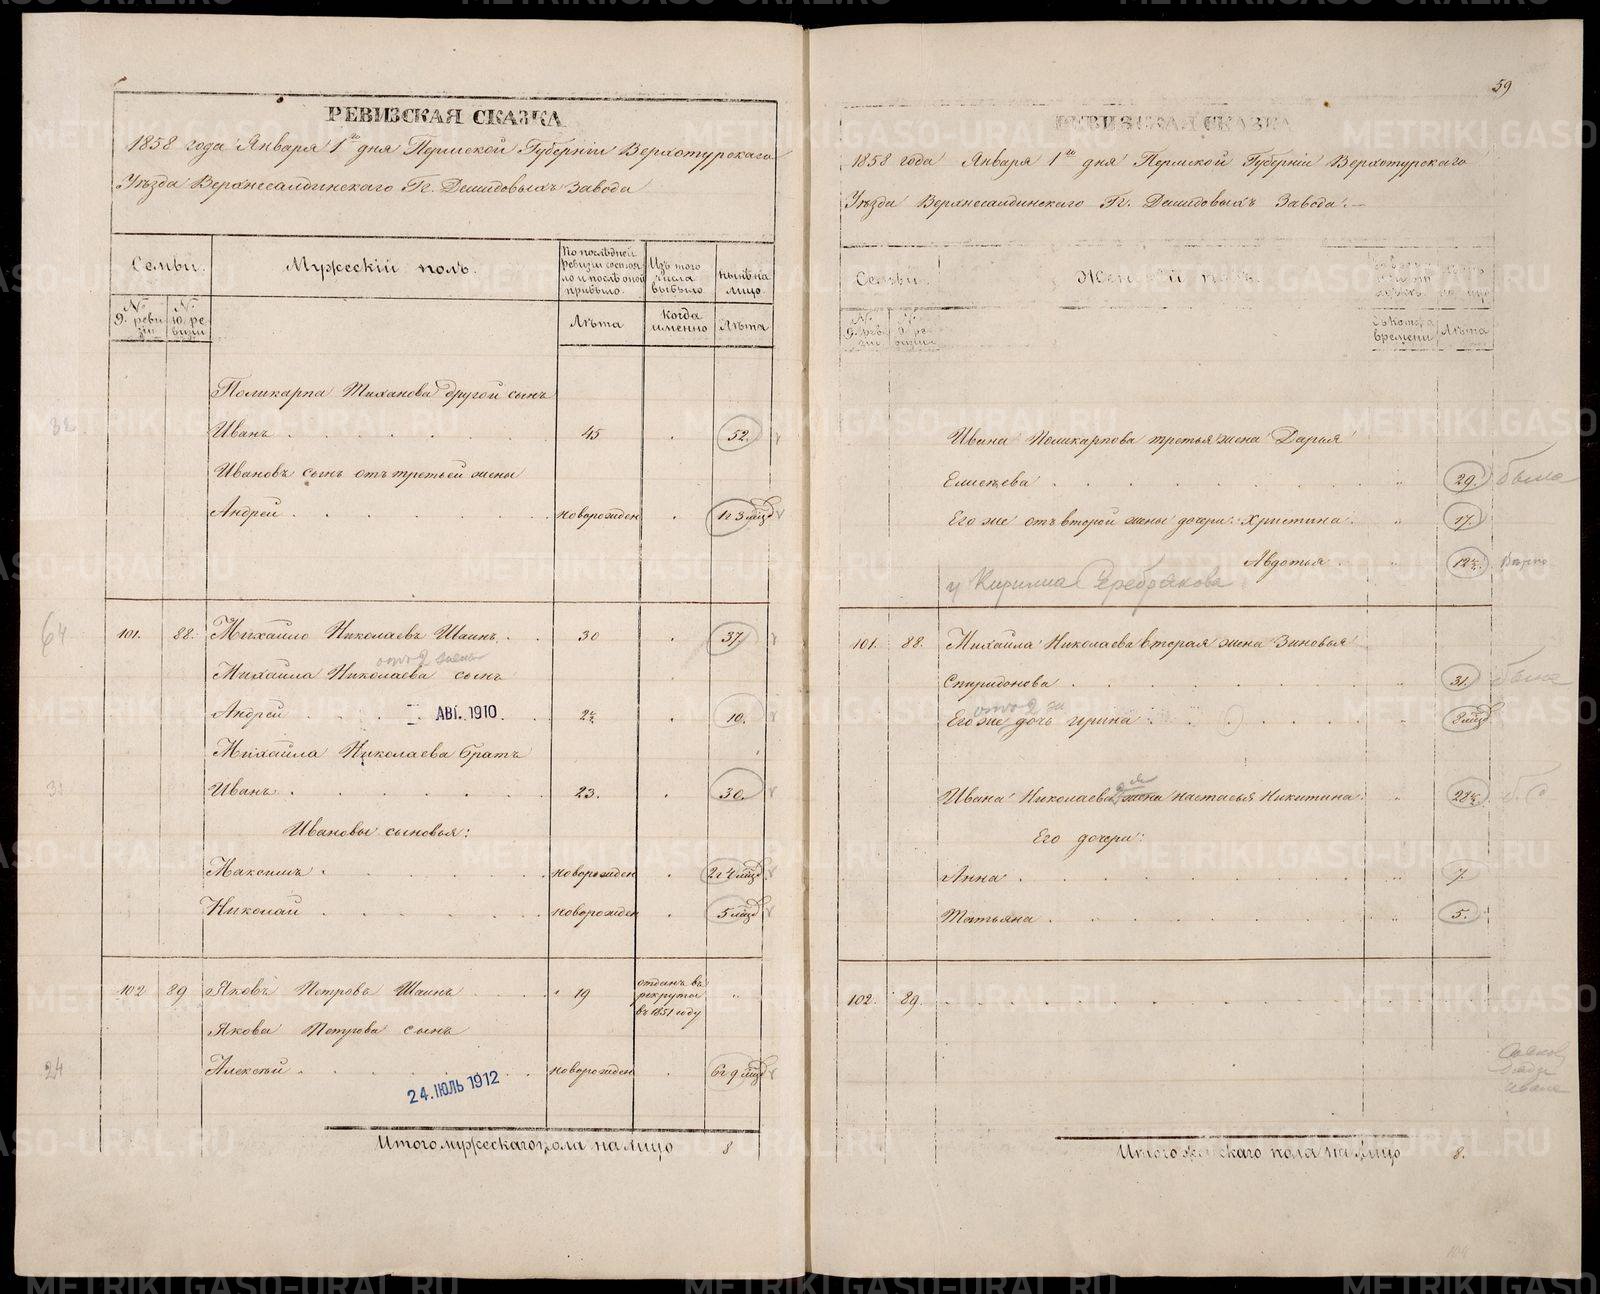 РЕВИЗСКАЯ СКАЗКА
1858 года Января 1го дня Пермской Губерніи Верхотурскаго
Уѣзда Верхнесалдинскаго Гг. Демидовыхъ Завода
Семьи.
Мужескій полъ.
По послѣдней ревизіи состояло и послѣ оной прибыло.
Изъ того числа выбыло
нынѣ на лицо.
№ 9. ревизіи
№ 10. ревизіи
Лѣта
Когда именно
Лѣта
Поликарпа Тиханова другой сынъ
32
Иванъ 45 52.
Ивановъ сынъ отъ третьей жены
Андрей новорожден 1г 3 мѣсц
64
101. 88. Михайло Николаевъ Шаинъ 30 37.
от 2 жены
Михайла Николаева сынъ
Андрей АВГ. 1910 2½ 10.
Михайла Николаева братъ
Иванъ 23. 30.
Ивановы сыновья:
Максимъ новорожден 2г 4 мѣсц
Николай новорожден 5 мѣсц
102 89 Яковъ Петровъ Шаинъ 19 отданъ въ рекруты въ 1851 году
Якова Петрова сынъ
24
Алексѣй новорожден 6г 9 мѣсц
24. ІЮЛЬ 1912
Итого мужескаго пола на лицо 8
59
РЕВИЗСКАЯ СКАЗКА
1858 года Января 1го дня Пермской Губерніи Верхотурскаго
Уѣзда Верхнесалдинскаго Гг. Демидовыхъ Завода.
Семьи.
Женскій полъ.
№ 9. ревизіи
Съ котора времени
Лѣта
Ивана Поликарпова третья жена Дарья
Елисѣева 29.
Его же отъ второй жены дочери: Христина 17.
Авдотья 12½
у Кирилла Серебрякова
101. 88. Михайла Николаева вторая жена Зиновья
Спиридонова 31.
Его же дочь Ирина 8 мѣсц
Ивана Николаева жена Настасья Никитина 28½
Его дочери:
Анна 7.
Татьяна 5.
102. 89.
Итого женскаго пола на лицо 8.
104
METRIKI.GASO-URAL.RU